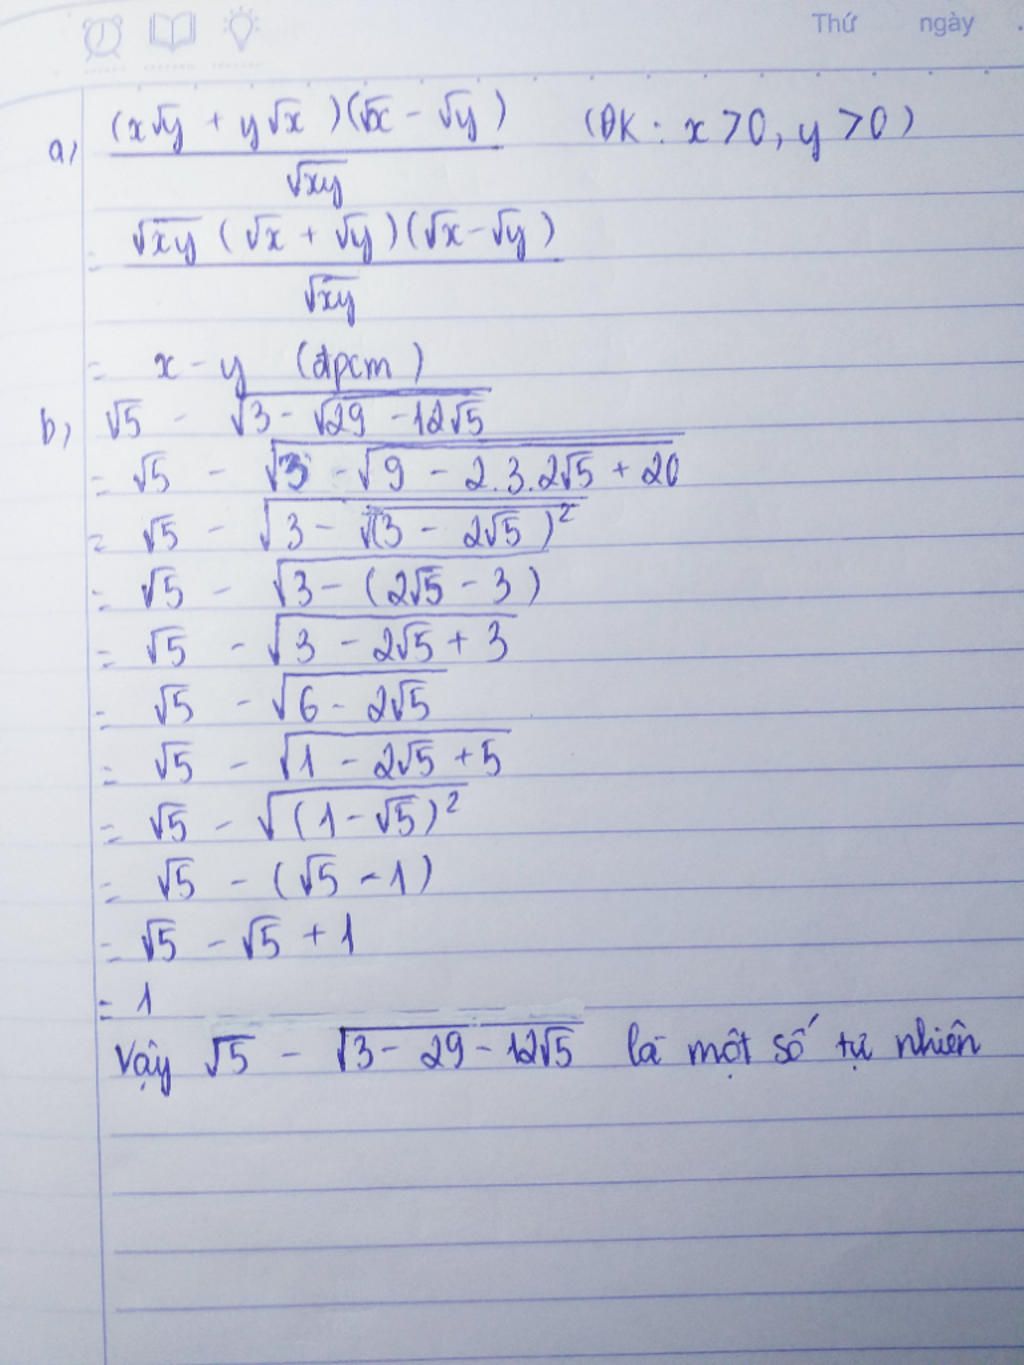 Thứ ngày
a, (x√y + y√x)(√x - √y) / √xy (ĐK: x > 0, y > 0)
= √xy (√x + √y)(√x - √y) / √xy
= x - y (đpcm)
b, √5 - √(3 - √(29 - 12√5))
= √5 - √(3 - √(9 - 2.3.2√5 + 20))
= √5 - √(3 - √((3 - 2√5)²))
= √5 - √(3 - (2√5 - 3))
= √5 - √(3 - 2√5 + 3)
= √5 - √(6 - 2√5)
= √5 - √(1 - 2√5 + 5)
= √5 - √((1 - √5)²)
= √5 - (√5 - 1)
= √5 - √5 + 1
= 1
Vậy √5 - √(3 - 29 - 12√5) là một số tự nhiên